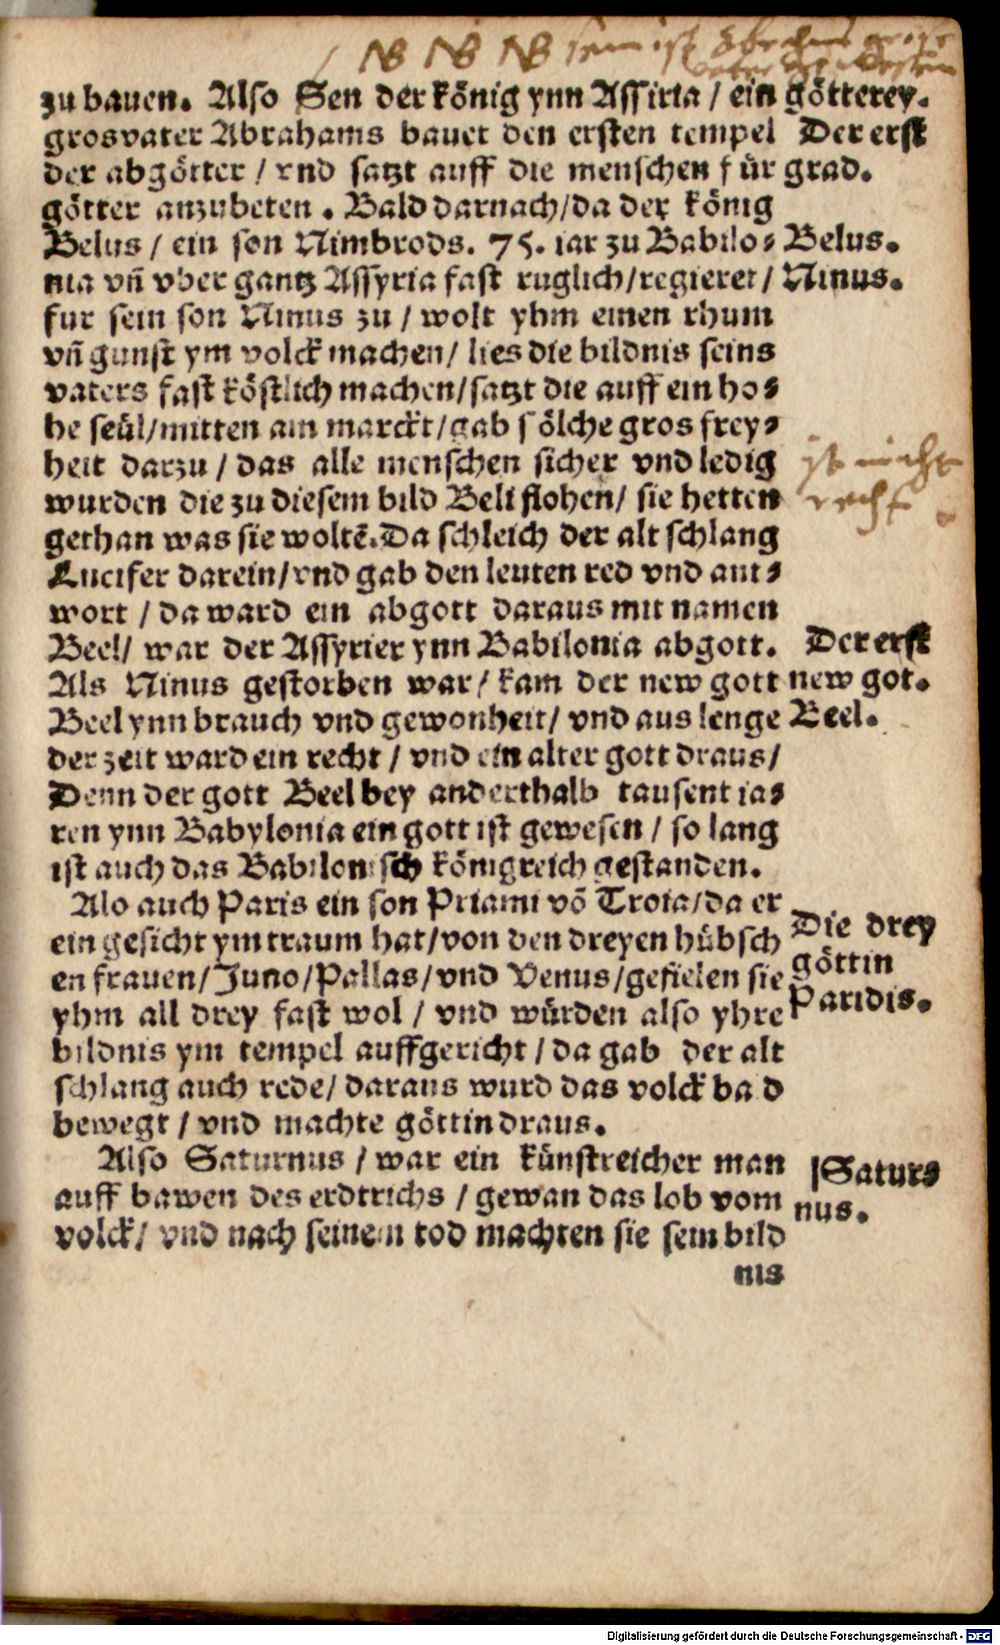 NB NB NB sem ist Abrahams gros
vater gewesen
zu bauen. Also Sen der könig ynn Assiria / ein
grosvater Abrahams bauet den ersten tempel
der abgötter / vnd satzt auff die menschen für
götter anzubeten . Bald darnach / da der könig
Belus / ein son Nimbrods. 75. iar zu Babilo⸗
nia vñ vber gantz Assyria fast ruglich / regieret /
fur sein son Ninus zu / wolt yhm einen rhum
vñ gunst ym volck machen / lies die bildnis seins
vaters fast köstlich machen / satzt die auff ein ho⸗
he seül / mitten am marckt / gab sölche gros frey⸗
heit darzu / das alle menschen sicher vnd ledig
wurden die zu diesem bild Beli flohen / sie hetten
gethan was sie woltē. Da schleich der alt schlang
Lucifer darein / vnd gab den leuten red vnd ant⸗
wort / da ward ein abgott daraus mit namen
Beel / war der Assyrier ynn Babilonia abgott.
Als Ninus gestorben war / kam der new gott
Beel ynn brauch vnd gewonheit / vnd aus lenge
der zeit ward ein recht / vnd ein alter gott draus /
Denn der gott Beel bey anderthalb tausent ia⸗
ren ynn Babylonia ein gott ist gewesen / so lang
ist auch das Babilonisch königreich gestanden.
Alo auch Paris ein son Priami vō Troia / da er
ein gesicht ym traum hat / von den dreyen hübsch
en frauen / Juno / Pallas / vnd Venus / gefielen sie
yhm all drey fast wol / vnd würden also yhre
bildnis ym tempel auffgericht / da gab der alt
schlang auch rede / daraus wurd das volck bad
bewegt / vnd machte göttin draus.
Also Saturnus / war ein künstreicher man
auff bawen des erdtrichs / gewan das lob vom
volck / vnd nach seinem tod machten sie sein bild
nis
götterey.
Der erst
grad.
Belus.
Ninus.
ist nicht
recht
Der erst
new got.
Beel.
Die drey
göttin
Paridis.
Saturs
nus.
Digitalisierung gefördert durch die Deutsche Forschungsgemeinschaft - DFG